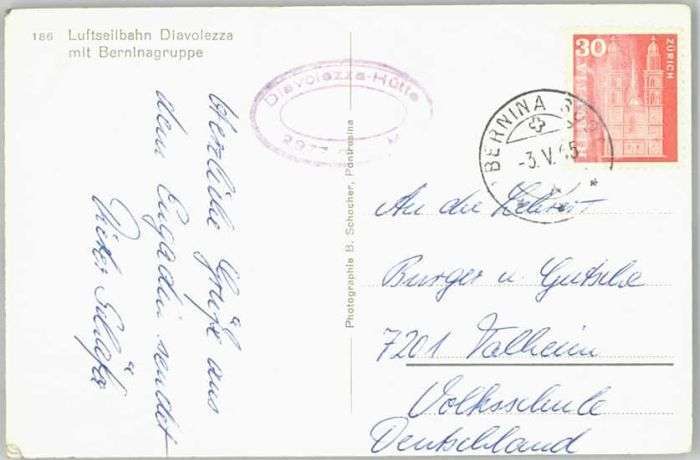 186 Luftseilbahn Diavolezza
mit Berninagruppe
Diavolezza-Hütte
2977
Herzliche Grüße aus
dem Engadin sendet
Photographie B. Schocher, Pontresina
30
HELVETIA
ZÜRICH
BERNINA
-3.V.65
An die Lehrer
Burger u. Gutsche
7201 Talheim
Volksschule
Deutschland